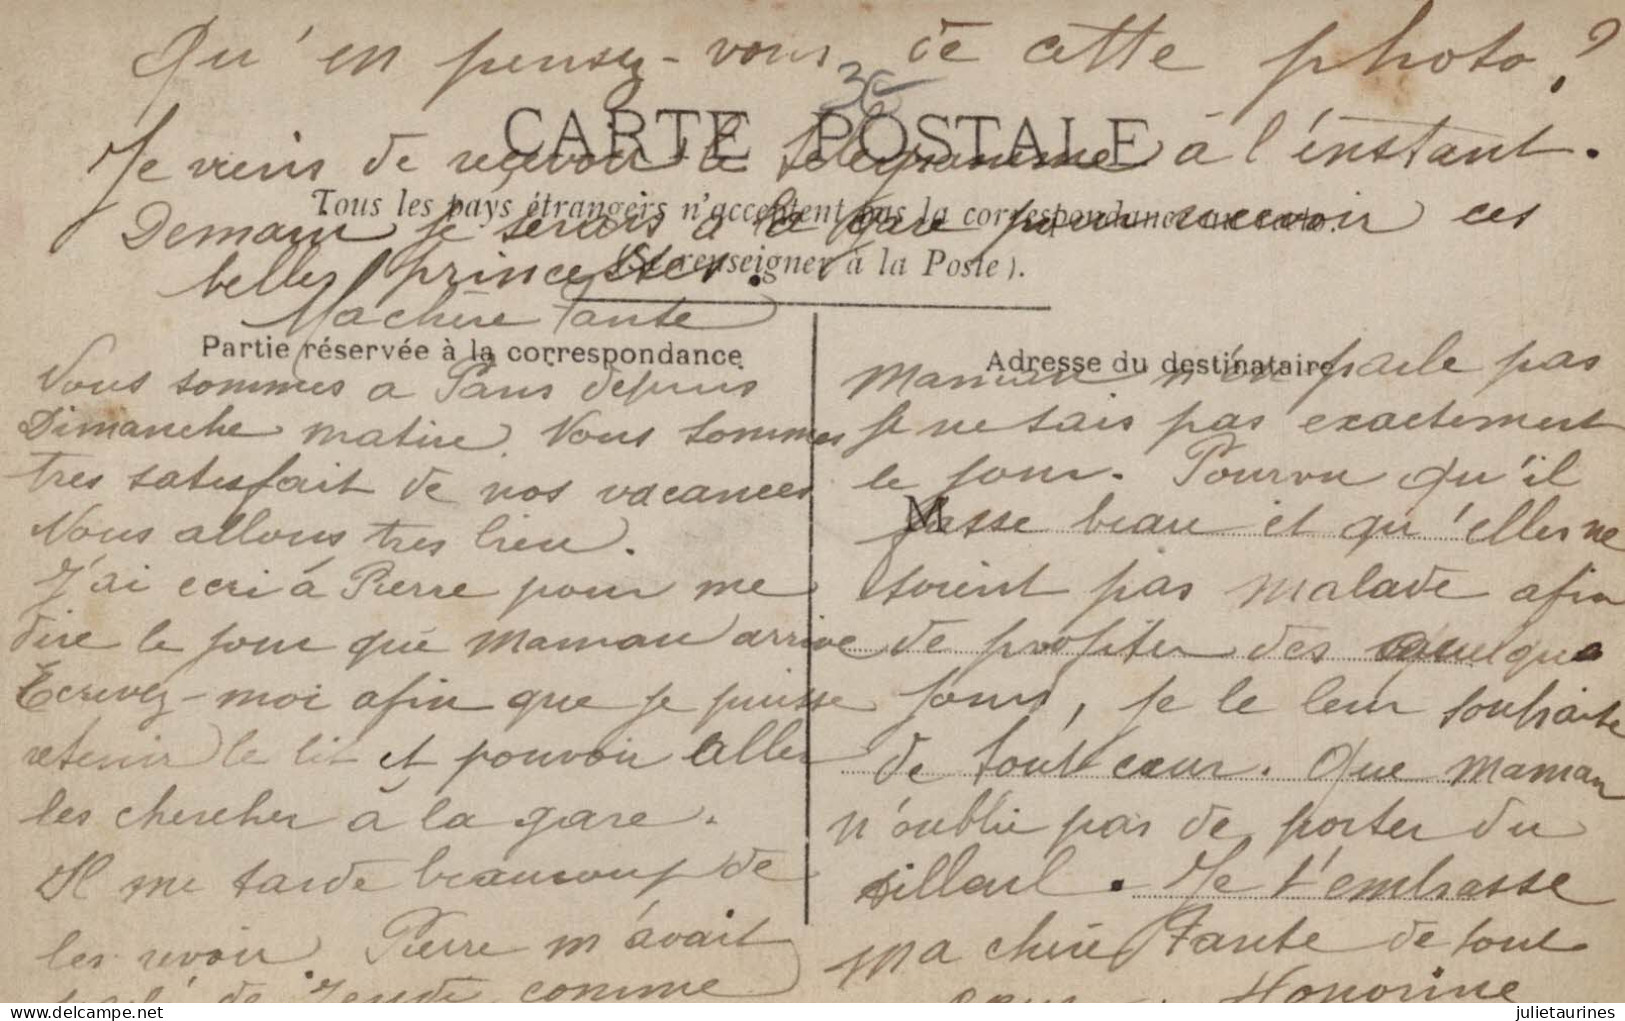 Qu'en pensez-vous de cette photo?
36
CARTE POSTALE
Je viens de recevoir le télégramme à l'instant.
Tous les pays étrangers n'acceptent pas la correspondance au recto.
Demain je serais à la gare pour recevoir ces
(Se renseigner à la Poste).
belles princesses.
Ma chère Tante
Partie réservée à la correspondance
Nous sommes a Paris depuis
Dimanche matin. Nous sommes
tres satisfait de nos vacances
Nous allons tres bien.
J'ai ecri à Pierre pour me
dire le jour que Maman arrive
Ecrivez-moi afin que je puisse
retenir le lit et pouvoir aller
les chercher à la gare.
Il me tarde beaucoup de
les revoir. Pierre m'avait
parlé de Jeudi comme
Adresse du destinataire
Maman n'en parle pas
je ne sais pas exactement
le jour. Pourvu qu'il
M
fasse beau et qu'elles ne
soient pas malade afin
de profiter des quelque
jours, je le leur souhaite
de tout cœur. Que Maman
n'oublie pas de porter du
tilleul. Je t'embrasse
Ma chère Tante de tout
cœur. Honorine
www.delcampe.net
julietaurines